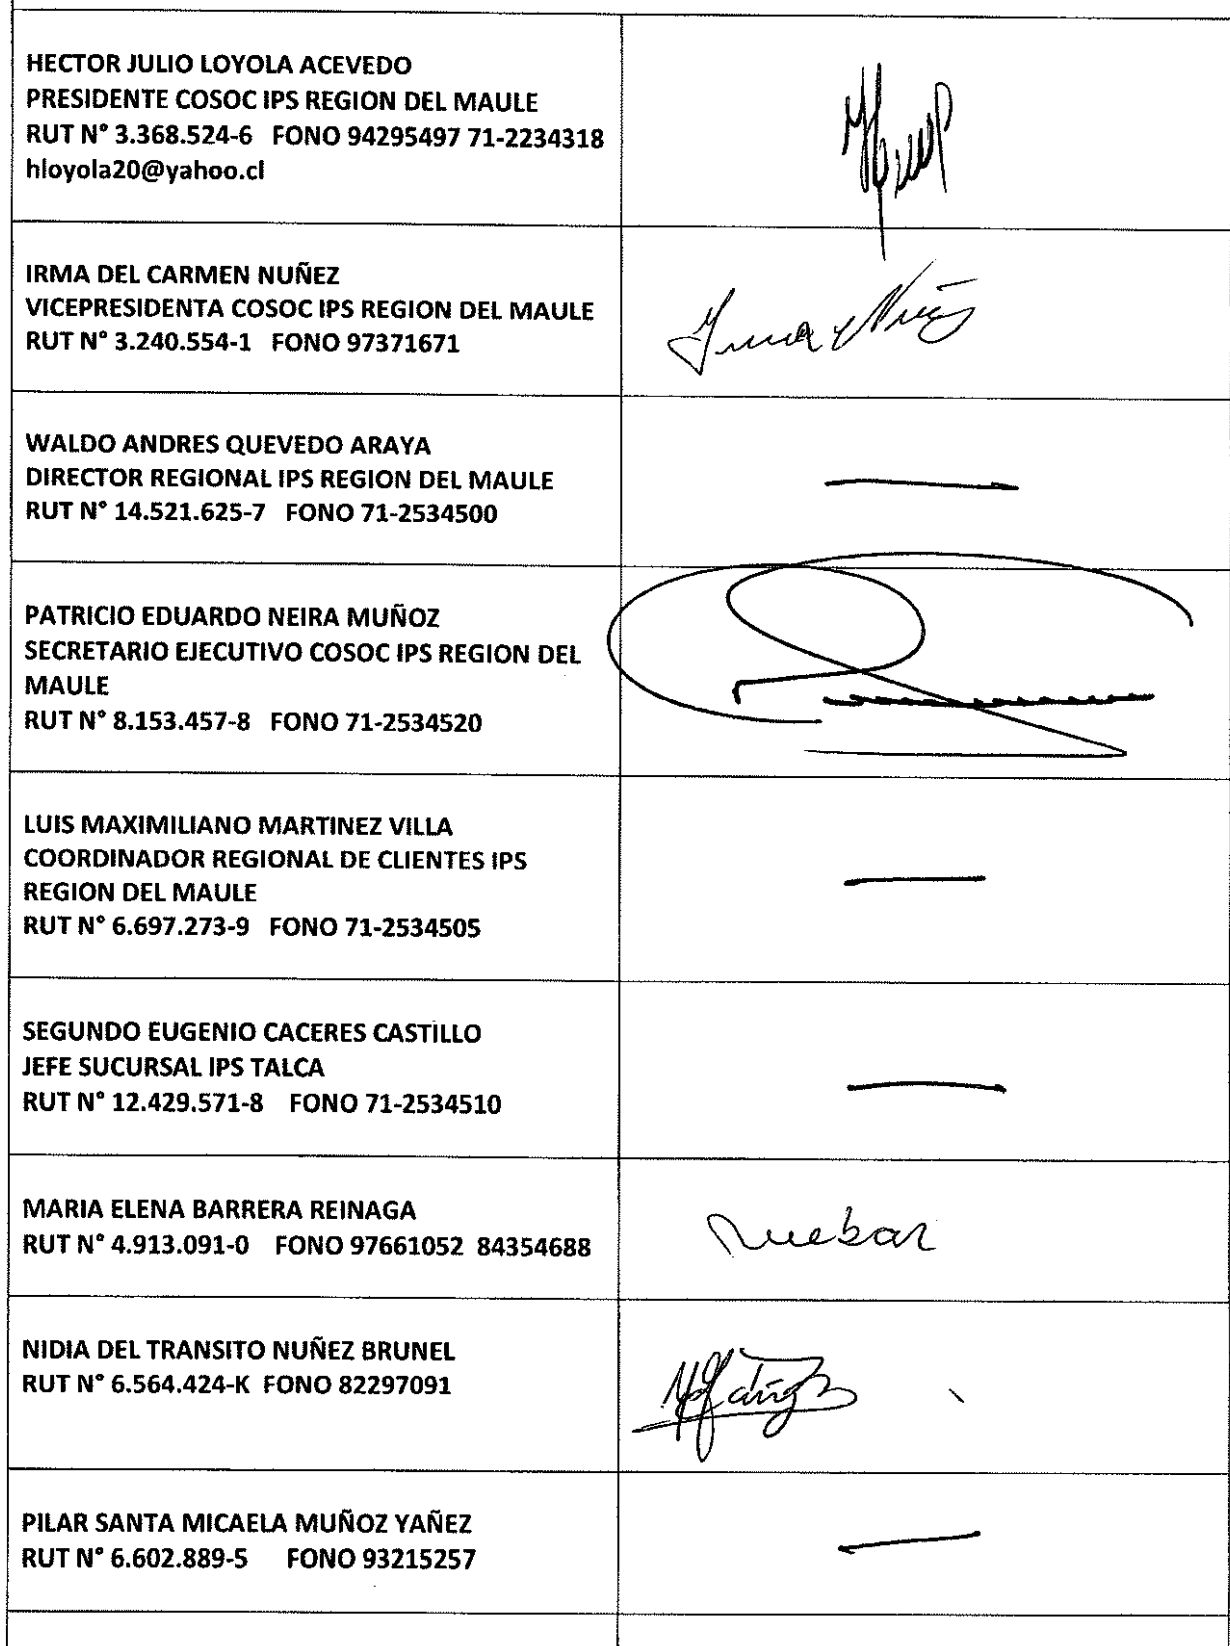 HECTOR JULIO LOYOLA ACEVEDO
PRESIDENTE COSOC IPS REGION DEL MAULE
RUT N° 3.368.524-6 FONO 94295497 71-2234318
hloyola20@yahoo.cl
IRMA DEL CARMEN NUÑEZ
VICEPRESIDENTA COSOC IPS REGION DEL MAULE
RUT N° 3.240.554-1 FONO 97371671
Irma Nuñez
WALDO ANDRES QUEVEDO ARAYA
DIRECTOR REGIONAL IPS REGION DEL MAULE
RUT N° 14.521.625-7 FONO 71-2534500
PATRICIO EDUARDO NEIRA MUÑOZ
SECRETARIO EJECUTIVO COSOC IPS REGION DEL
MAULE
RUT N° 8.153.457-8 FONO 71-2534520
LUIS MAXIMILIANO MARTINEZ VILLA
COORDINADOR REGIONAL DE CLIENTES IPS
REGION DEL MAULE
RUT N° 6.697.273-9 FONO 71-2534505
SEGUNDO EUGENIO CACERES CASTILLO
JEFE SUCURSAL IPS TALCA
RUT N° 12.429.571-8 FONO 71-2534510
MARIA ELENA BARRERA REINAGA
RUT N° 4.913.091-0 FONO 97661052 84354688
NIDIA DEL TRANSITO NUÑEZ BRUNEL
RUT N° 6.564.424-K FONO 82297091
PILAR SANTA MICAELA MUÑOZ YAÑEZ
RUT N° 6.602.889-5 FONO 93215257